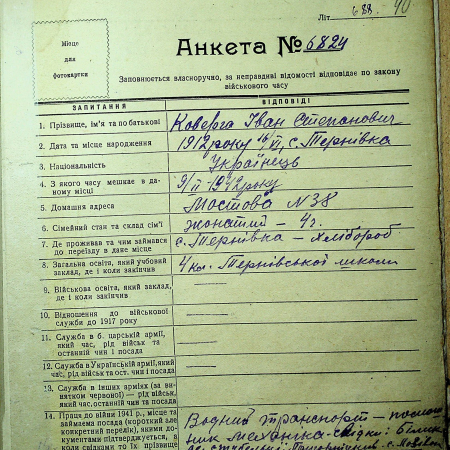 Літ. 688. 40
Місце
для
фотокартки
Анкета № 6824
Заповнюється власноручно, за неправдиві відомості відповідає по закону
військового часу
ЗАПИТАННЯ ВІДПОВІДІ
1. Прізвище, ім'я та по батькові Коверга Іван Степанович
2. Дата та місце народження 1912 року 16/VI, с. Тернівка
3. Національність Українець
4. З якого часу мешкає в даному місці 9/II - 1942 року
5. Домашня адреса Мостова № 38
6. Сімейний стан та склад сім'ї жонатий – 4 г.
7. Де проживав та чим займався
до переїзду в дане місце с. Тернівка – хлібороб
8. Загальна освіта, який учбовий
заклад, де і коли закінчив 4 кл. Тернівської школи
9. Військова освіта, який заклад,
де і коли закінчив
10. Відношення до військової
служби до 1917 року
11. Служба в б. царській армії,
який час, рід військ та
останній чин і посада
12. Служба в Українській армії, який
час, рід військ та ост. чин і посада
13. Служба в інших арміях (за винятком червоної) — рід військ,
який час, останній чин та посада
14. Праця до війни 1941 р., місце та
займаєма посада (короткий але
конкретний перелік), якими документами підтверджується, а
коли свідками то їх прізвища
Водний транспорт – помошник механіка – свідки: